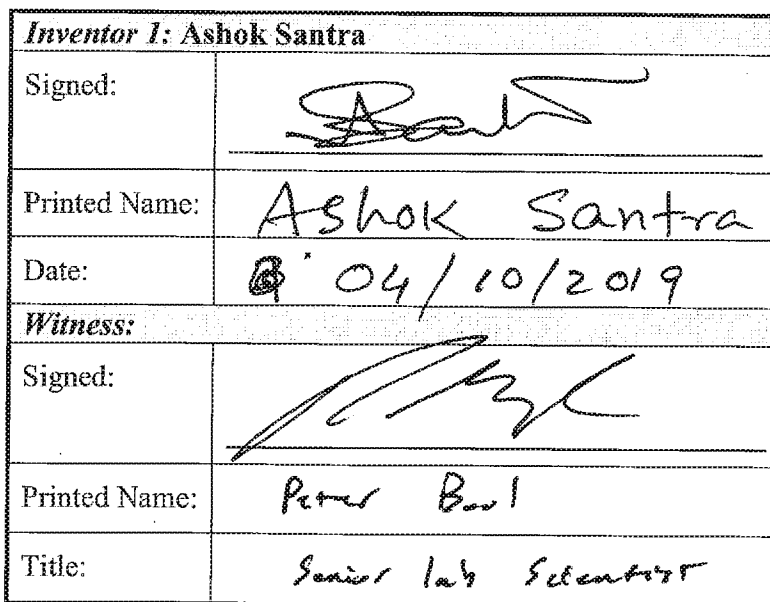 Inventor 1: Ashok Santra
Signed:
Printed Name: Ashok Santra
Date: 04/10/2019
Witness:
Signed:
Printed Name: Peter
Title: Senior lab Scientist